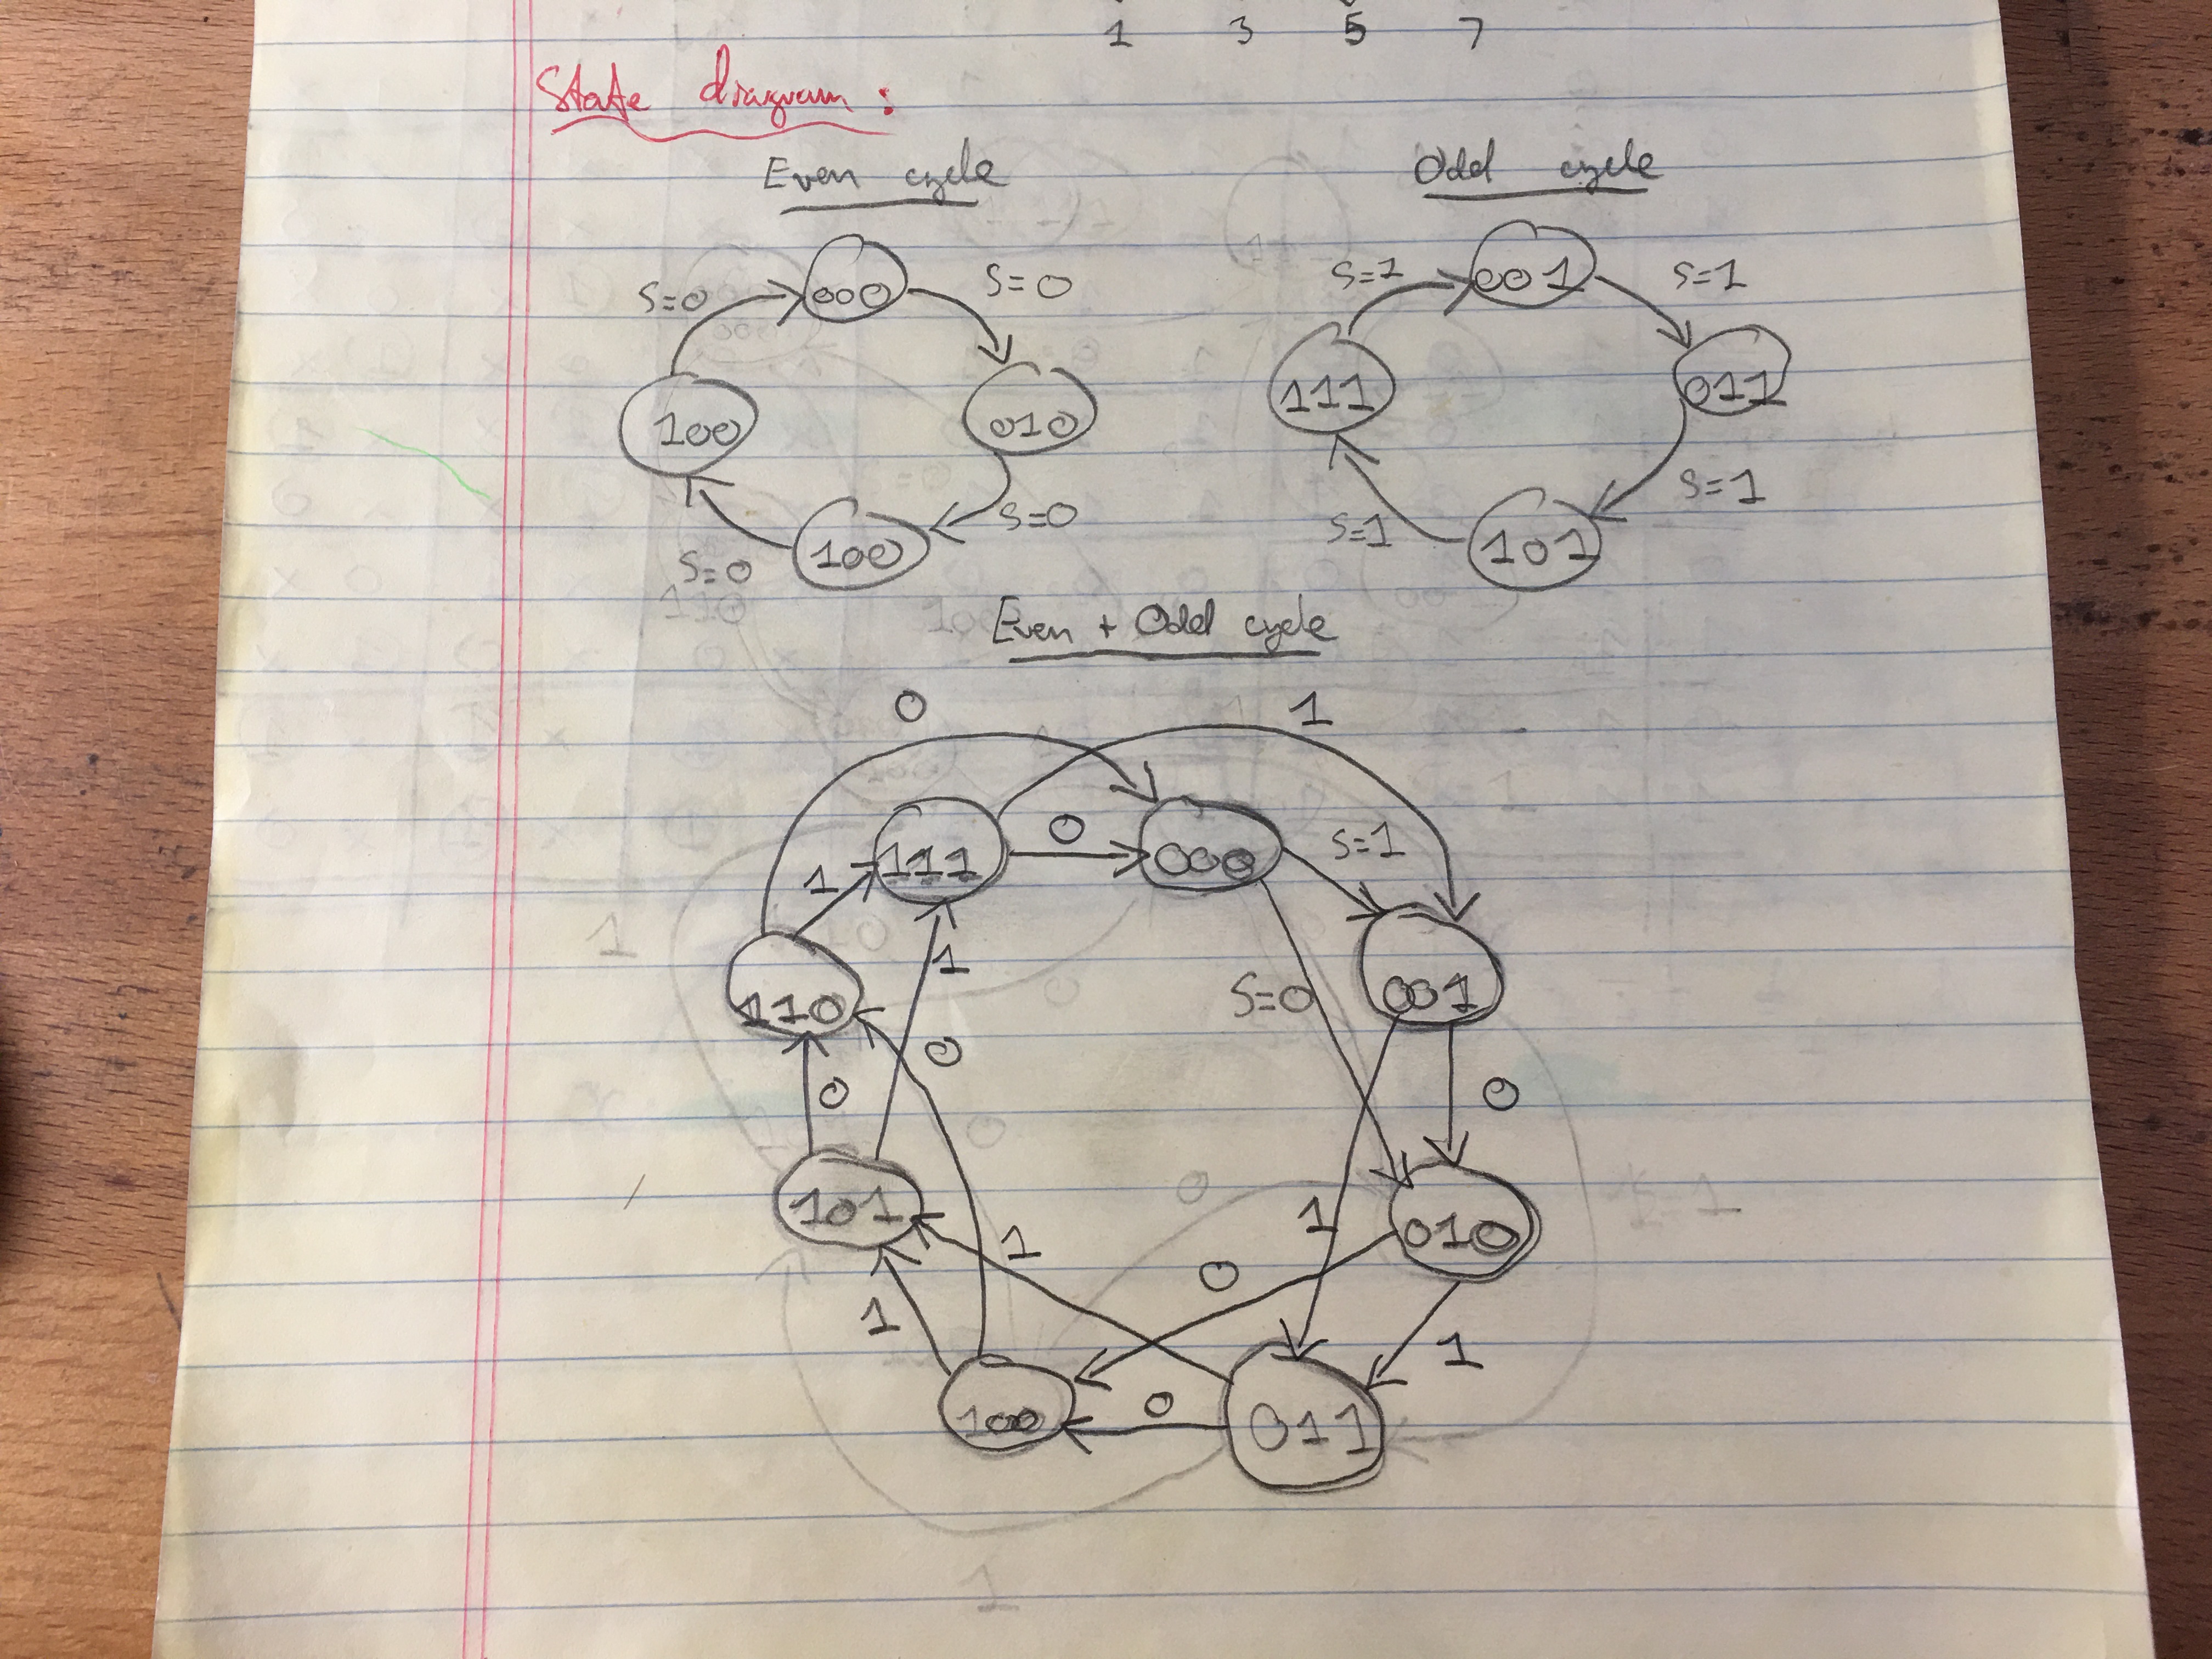 1 3 5 7
State diagram:
Even cycle
Odd cycle
S=0 000 S=0
100 010
S=0 100 S=0
110
S=1 001 S=1
111 011
S=1 101 S=1
Even + Odd cycle
0 1
111 0 000 S=1
1
110 1 S=0 001
0 0 0
101 1 1 010
0
1 1
100 0 011
1